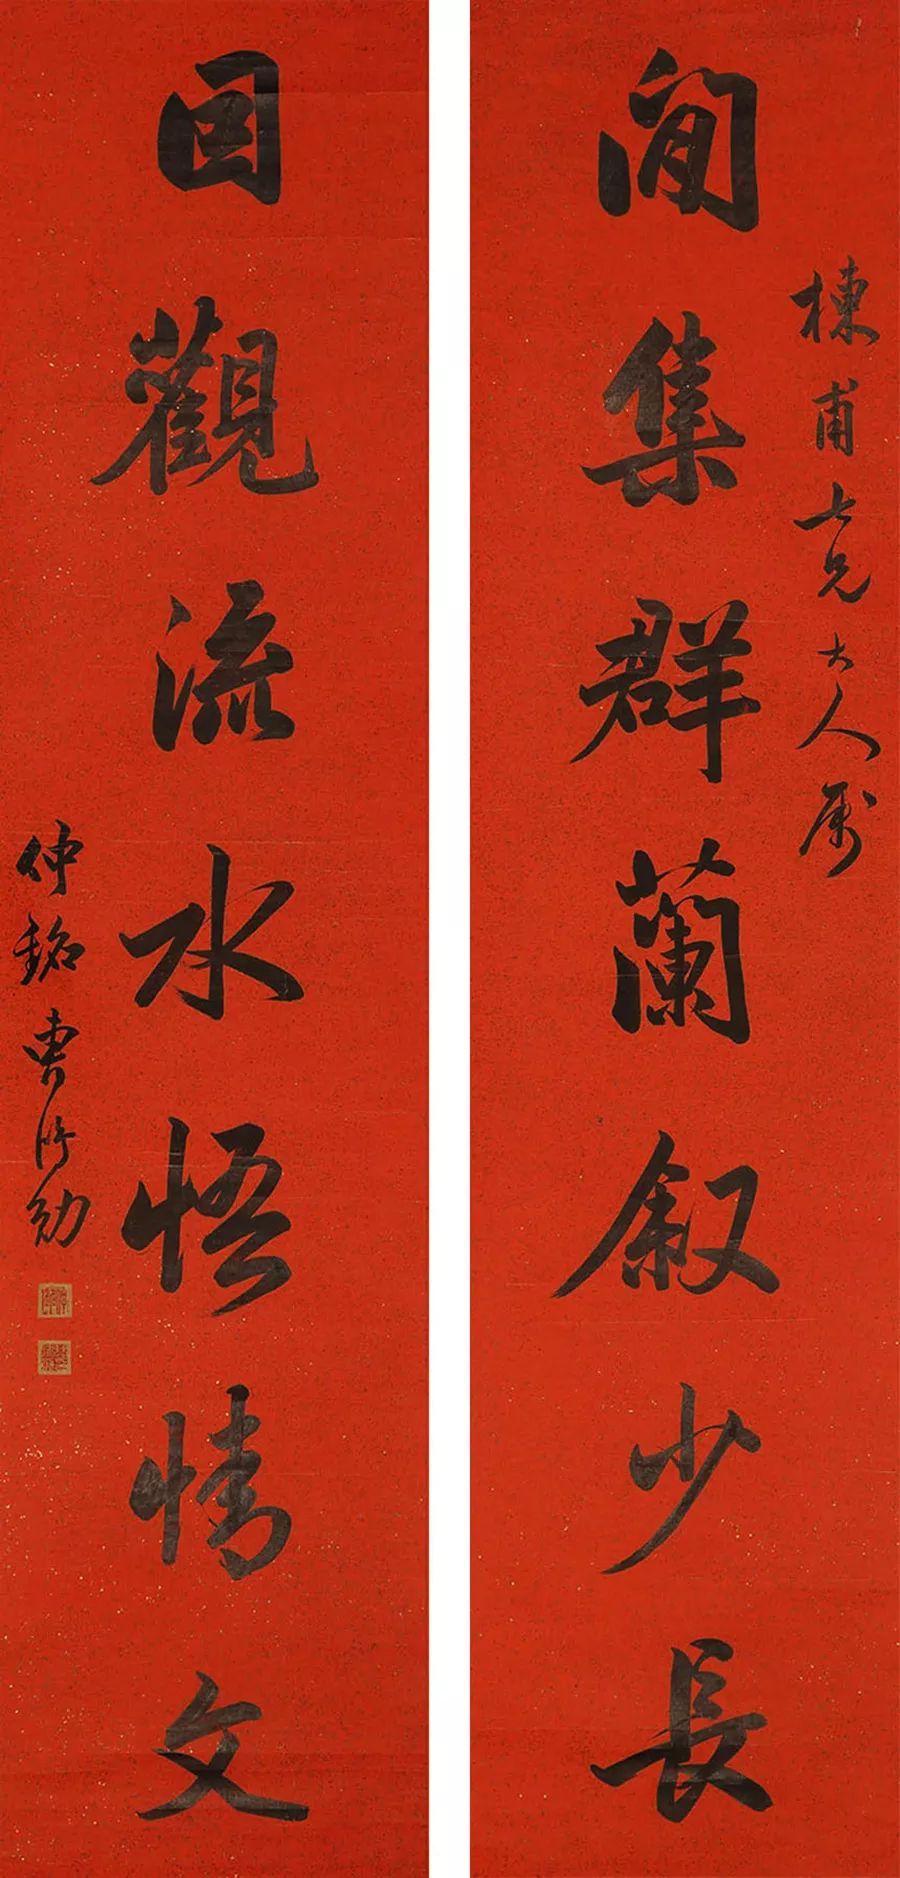 棟甫七兄大人属
閒集群蘭叙少長
因觀流水悟情文
仲銘曹鴻勛